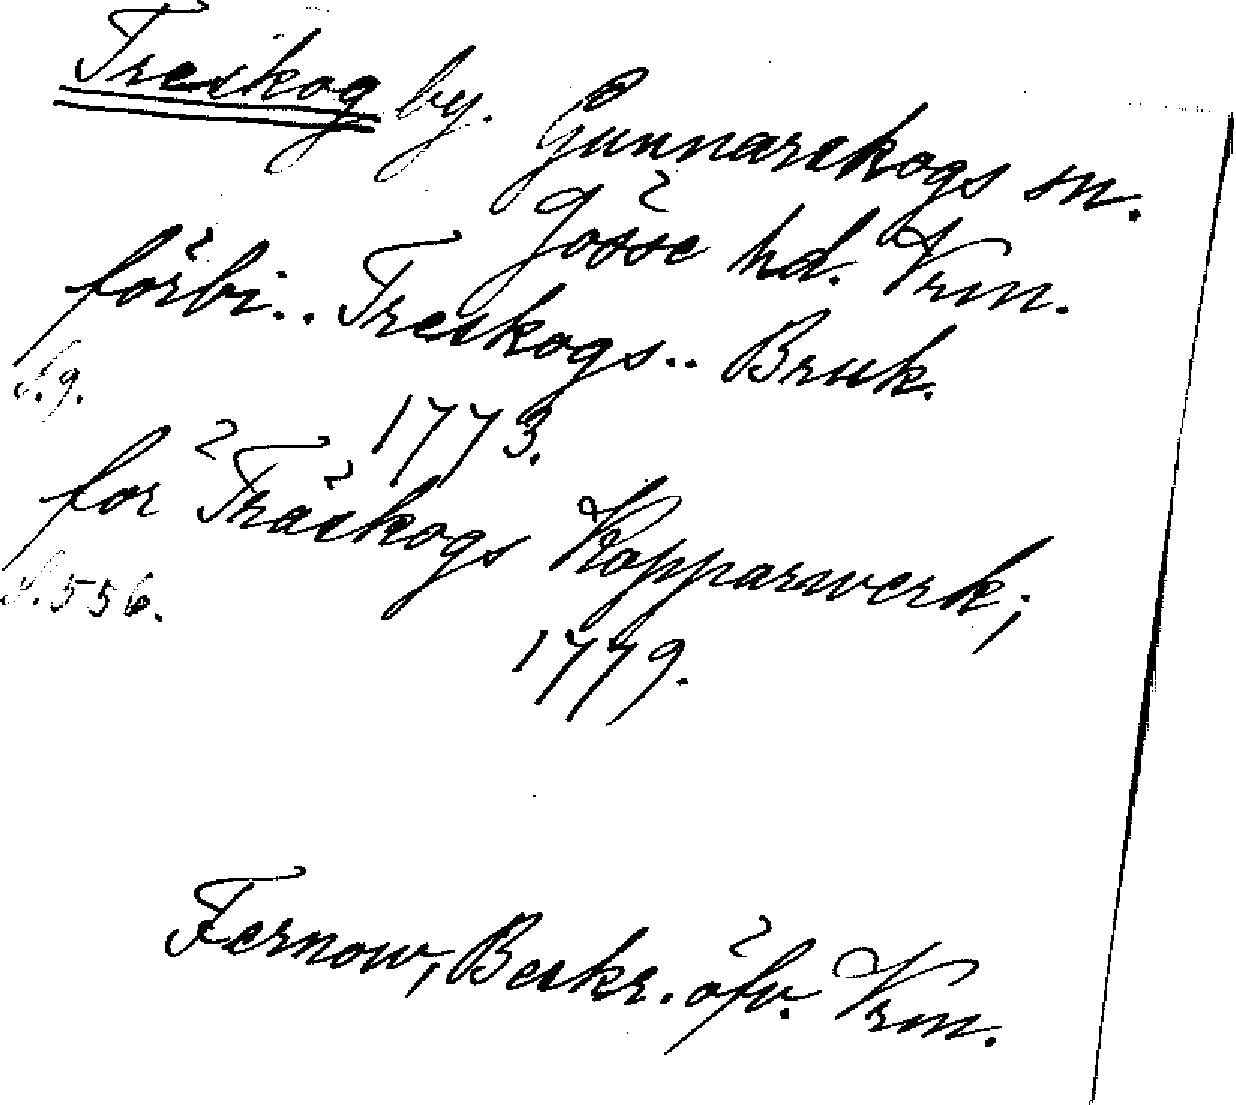 Treskog by. Gunnarskogs sn.
Jösse hd. Vrm.
förbi.. Treskogs.. Bruk.
S.9.
1773.
för Träskogs Kopparwerk;
S.556.
1779.
Fernow, Beskr. öfv. Vrm.